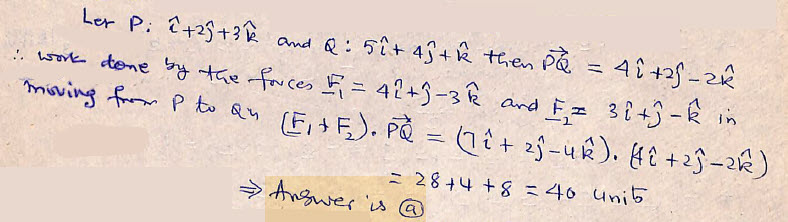 Let P: î+2ĵ+3k̂ and Q: 5î+4ĵ+k̂ then PQ⃗ = 4î+2ĵ-2k̂
∴ work done by the forces F₁ = 4î+ĵ-3k̂ and F₂ = 3î+ĵ-k̂ in
moving from P to Q is (F₁+F₂). PQ⃗ = (7î+2ĵ-4k̂). (4î+2ĵ-2k̂)
= 28+4+8 = 40 units
⇒ Answer is ⓐ